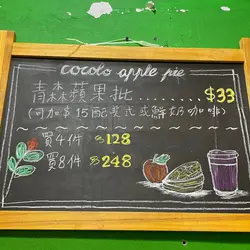 cocolo apple pie
青森蘋果批.......$33
(可加$15配美式或鮮奶咖啡)
買4件 $128
買8件 $248